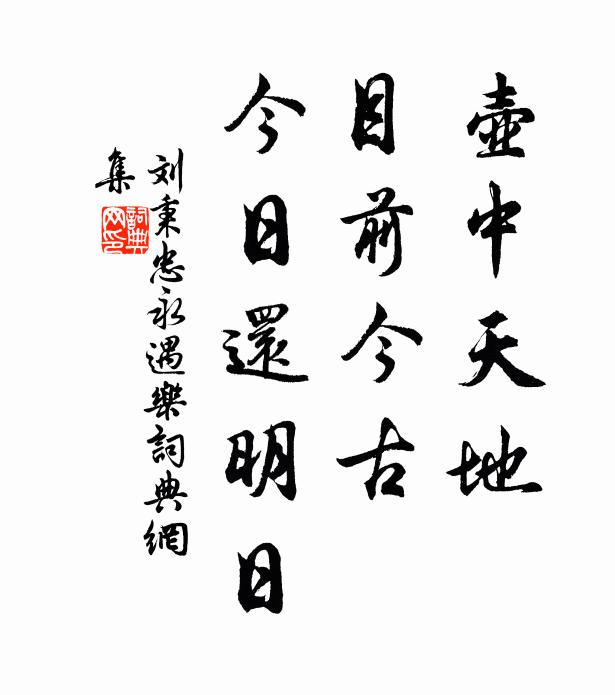 壺中天地
目前今古
今日還明日
刘秉忠永遇樂詞典網
集
詞典
网印